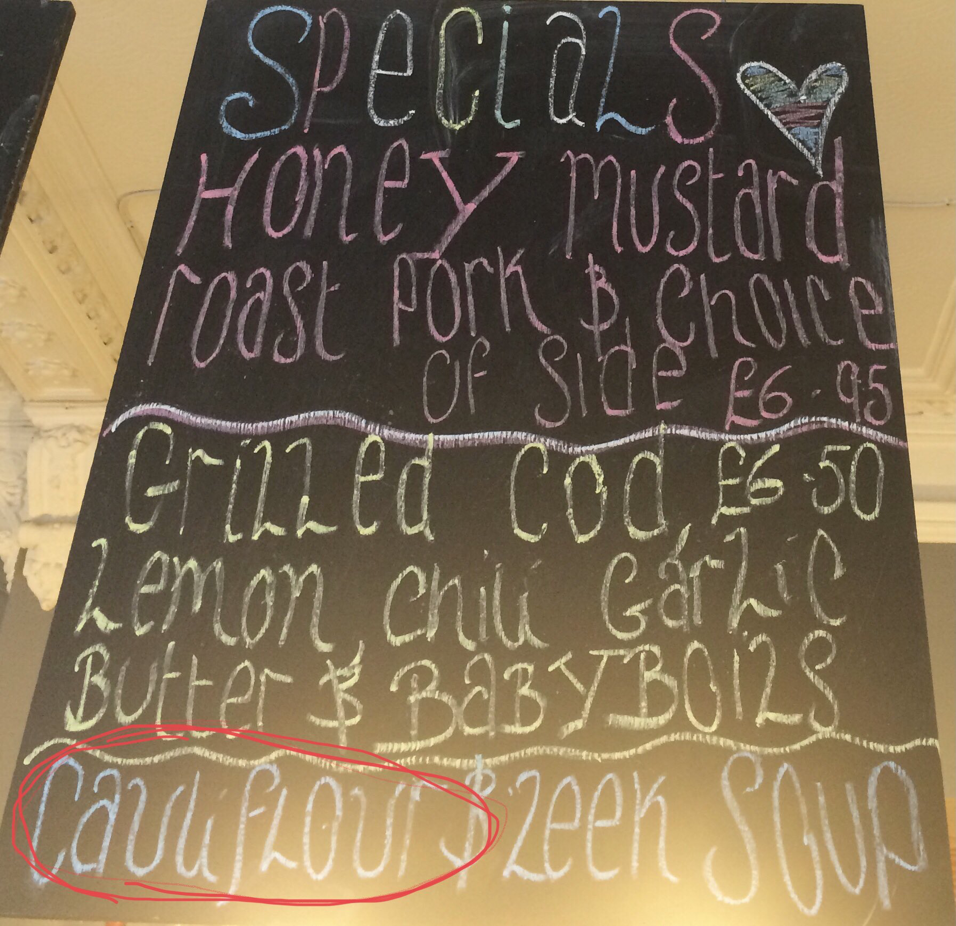 Specials
Honey mustard
roast pork & choice
of side £6.95
Grilled cod, £6.50
Lemon chili Garlic
Butter & BABYBOilS
Cauliflour & leek Soup